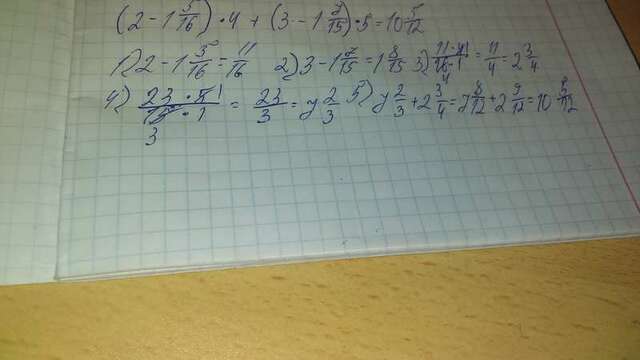 (2 - 1 5/16) · 4 + (3 - 1 7/15) · 5 = 10 5/12
1) 2 - 1 5/16 = 11/16 2) 3 - 1 7/15 = 1 8/15 3) 11 · 4 1/16 4 · 1 = 11/4 = 2 3/4
4) 23 · 5 1/15 3 · 1 = 23/3 = 7 2/3 5) 7 2/3 + 2 3/4 = 7 8/12 + 2 9/12 = 10 5/12